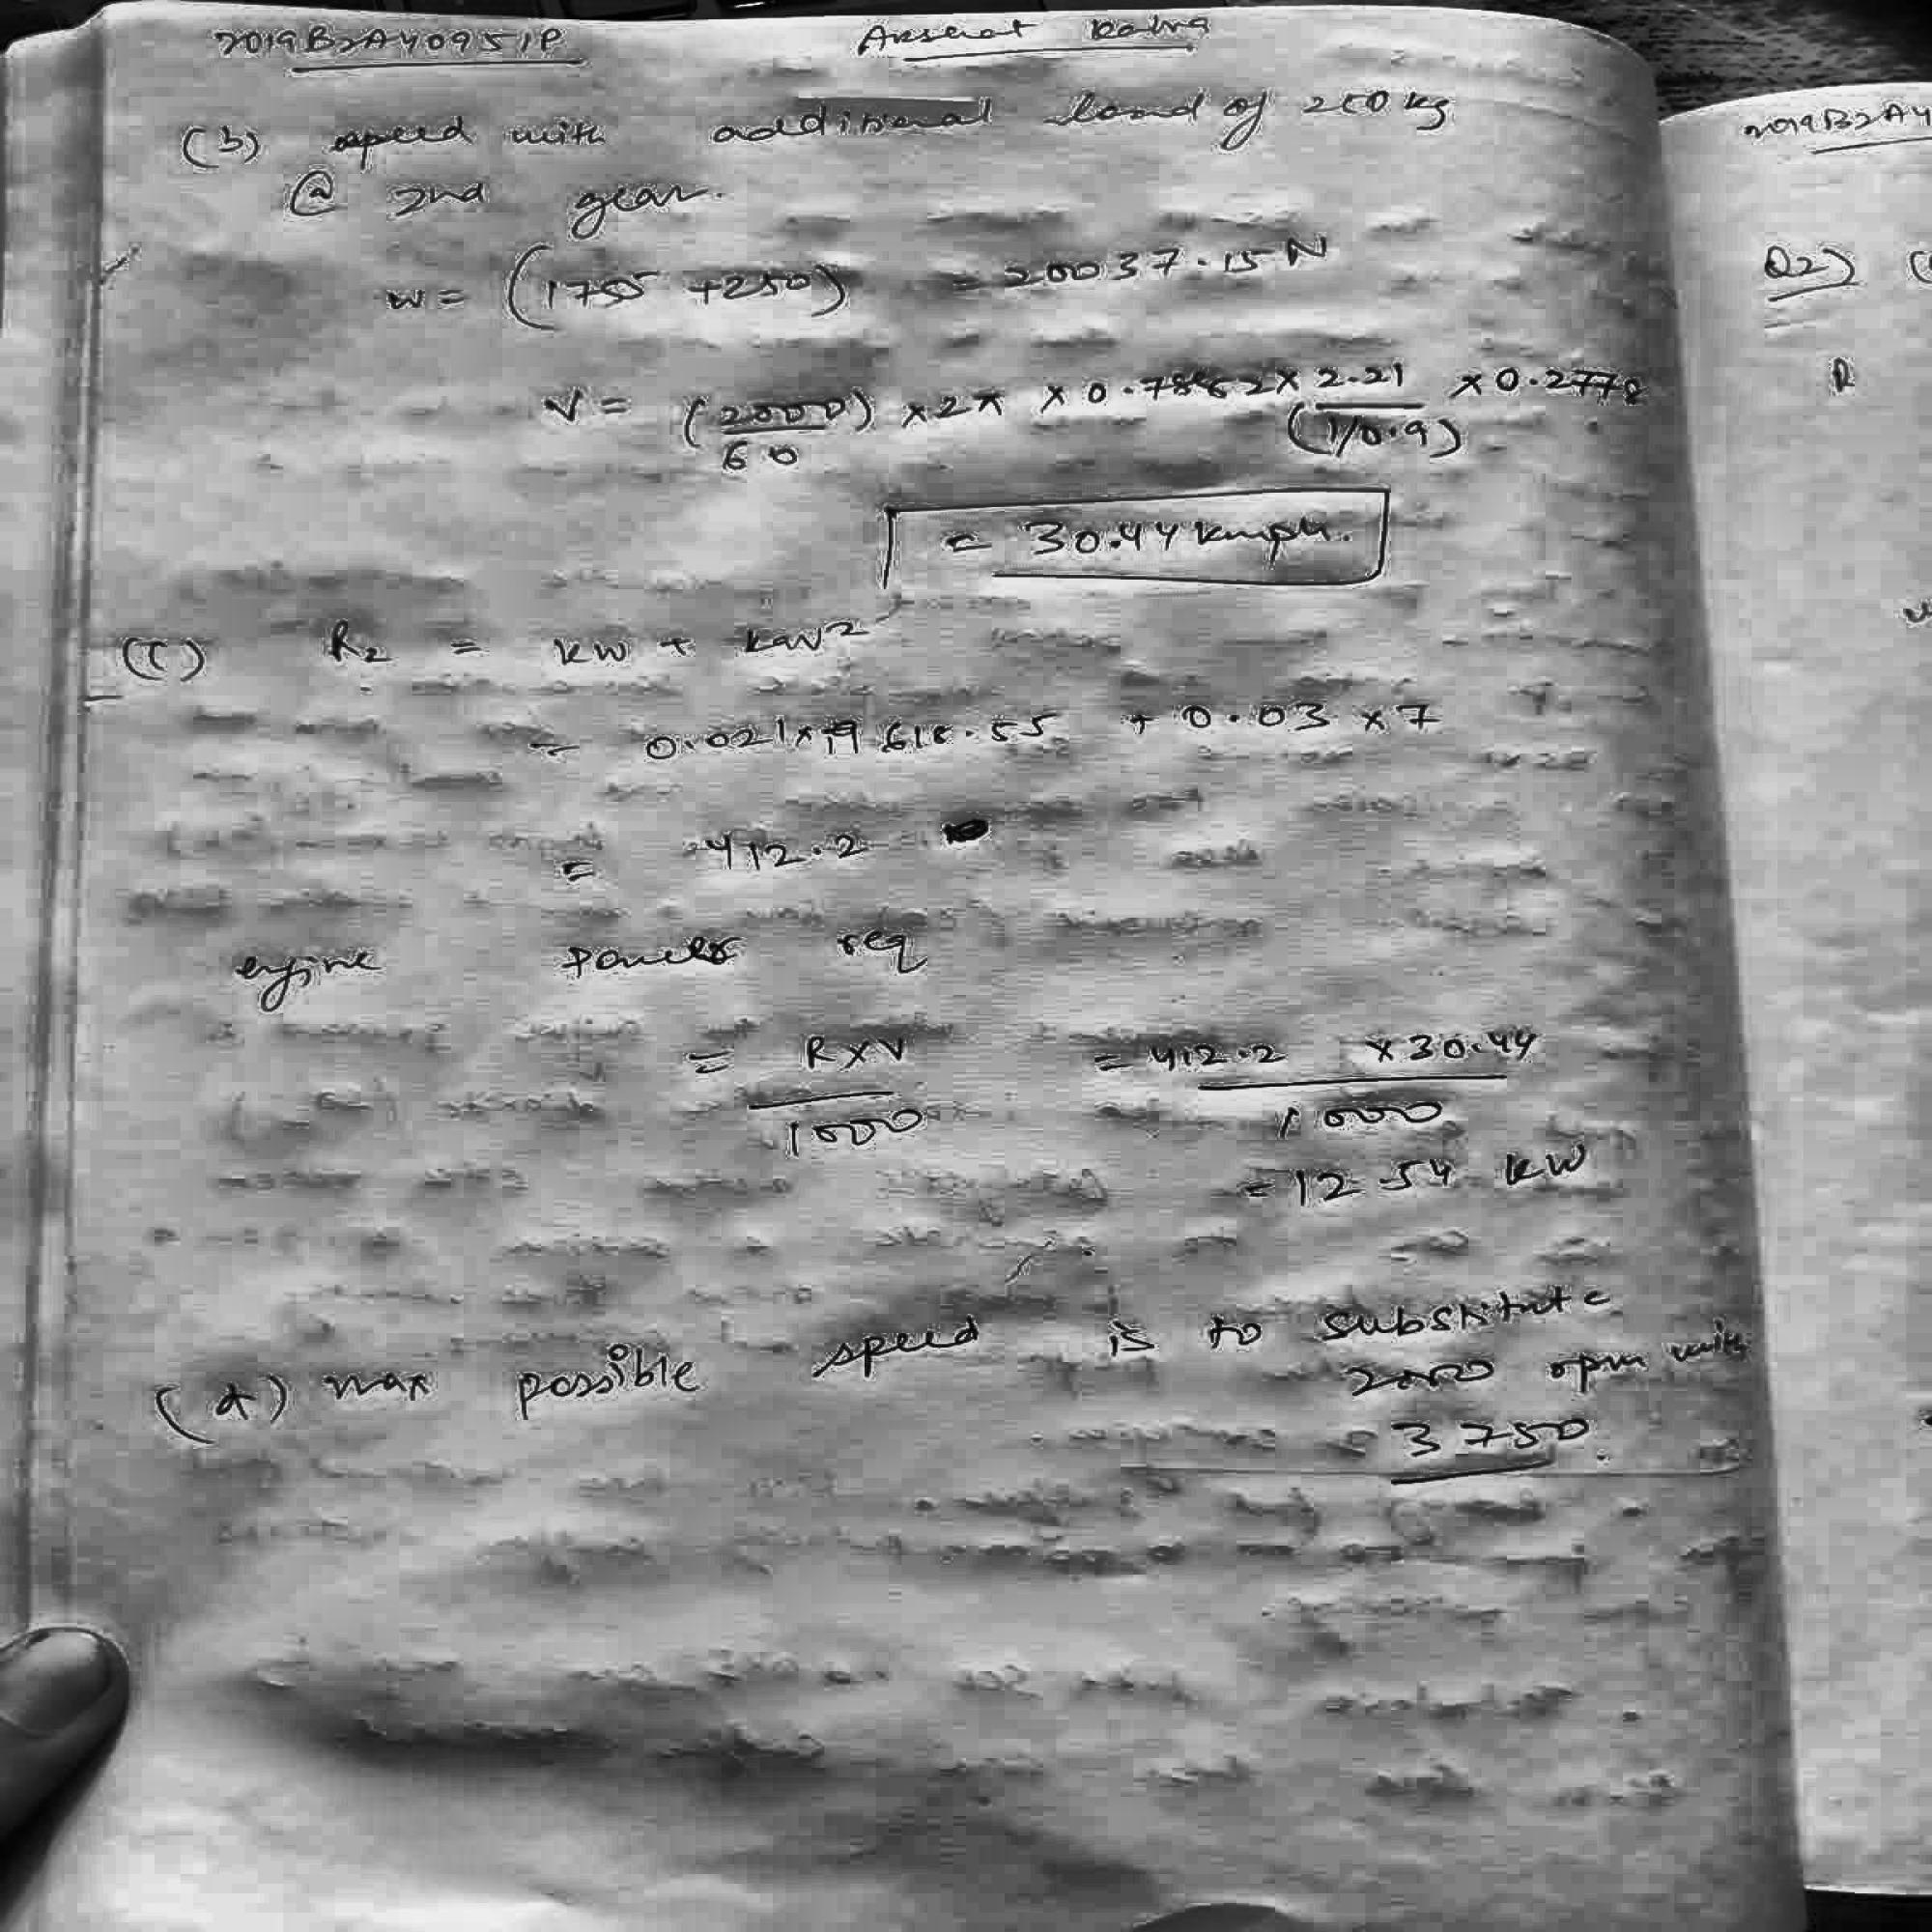 2019B2A40951P
(b) speed with additional load of 250 kg
@ 2nd gear.
w = (1755 + 250) = 20037.15 N
V = (2000/60) × 2π × × 2.21/(1/0.9) × 0.2778
= 30.44 kmph.
(C) R2 = kw + kav²
= 0.021 × 19618.55 + 0.03 × 7
= 412.2
engine power req
= R×V/1000 = 412.2 × 30.44/1000
= 12.54 kW
(d) max possible speed is to substitute
2000 rpm with
3750.
2019B2A4
Q2) (
R